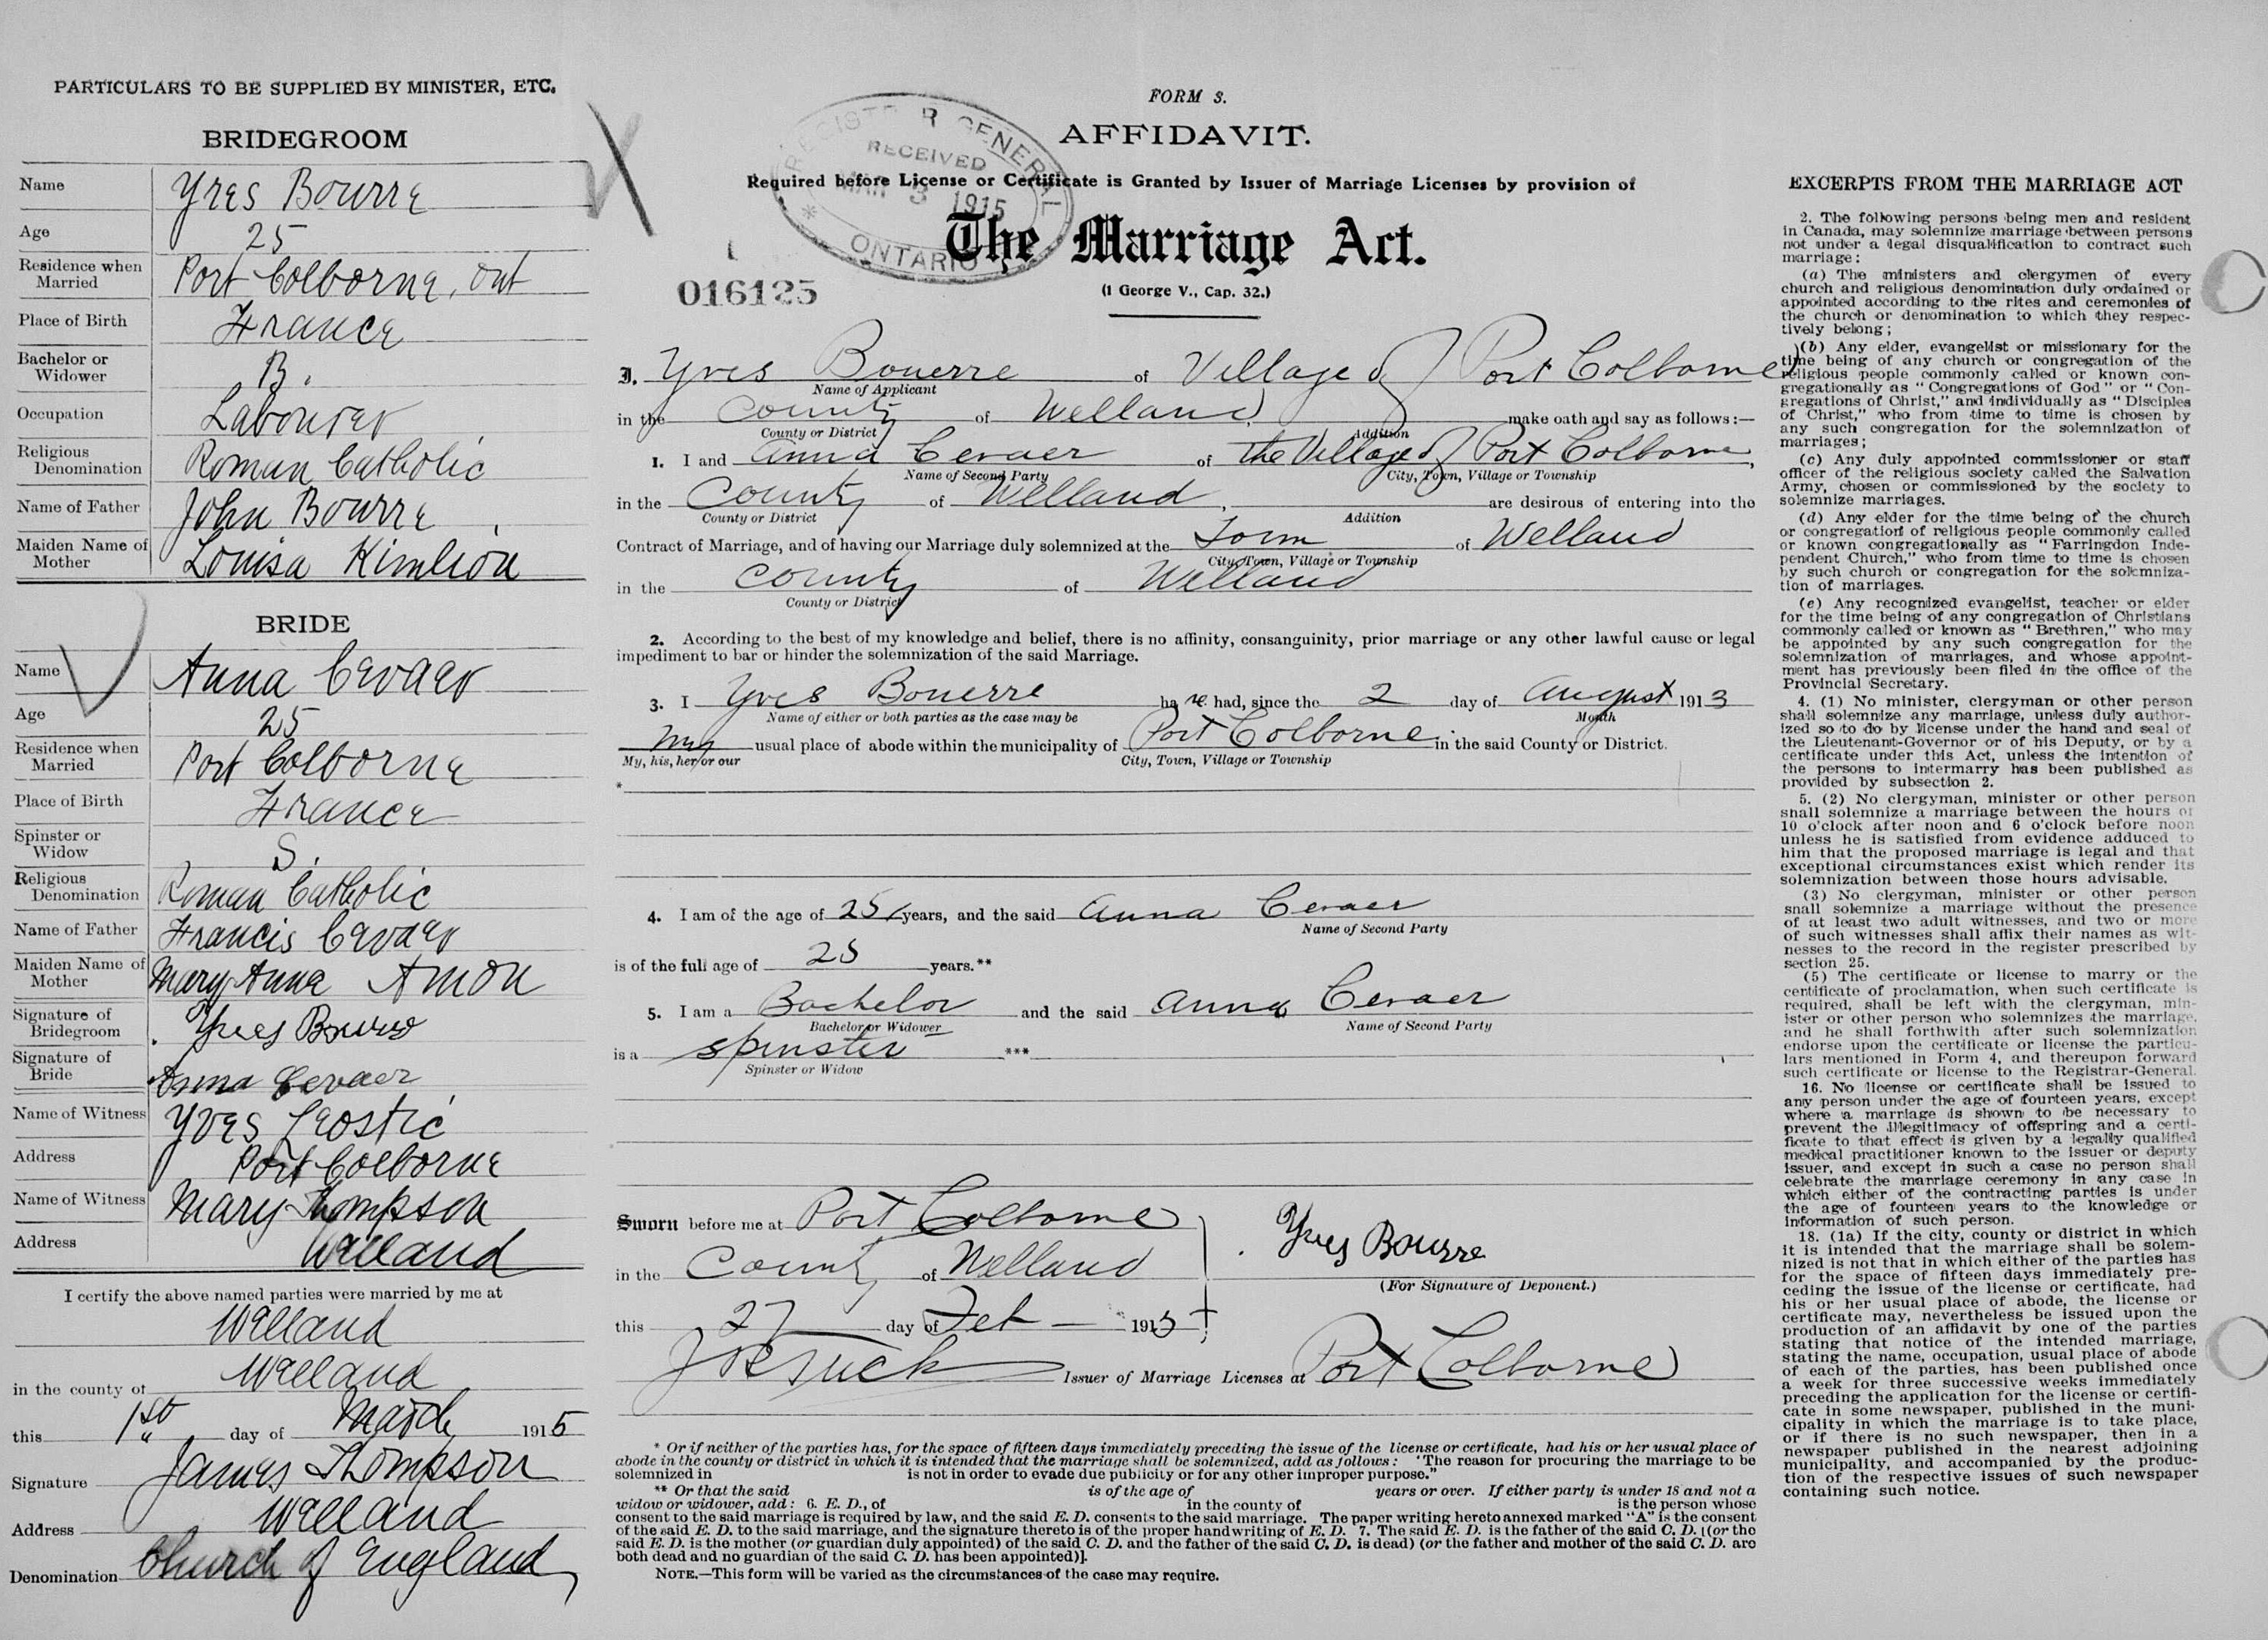 PARTICULARS TO BE SUPPLIED BY MINISTER, ETC.
BRIDEGROOM
Name Yves Bourre
Age 25
Residence when Married Port Colborne, Ont
Place of Birth France
Bachelor or Widower B.
Occupation Labourer
Religious Denomination Roman Catholic
Name of Father John Bourre
Maiden Name of Mother Louisa
BRIDE
Name Anna Cevaer
Age 25
Residence when Married Port Colborne
Place of Birth France
Spinster or Widow S.
Religious Denomination Roman Catholic
Name of Father Francis Cevaer
Maiden Name of Mother Mary Anna Amon
Signature of Bridegroom Yves Bourre
Signature of Bride Anna Cevaer
Name of Witness Yves
Address Port Colborne
Name of Witness Mary Thompson
Address Welland
I certify the above named parties were married by me at
Welland
in the county of Welland
this 1st day of March 1915
Signature James Thompson
Address Welland
Denomination Church of England
FORM 3.
AFFIDAVIT.
REGISTRAR GENERAL
RECEIVED
MAR 3 1915
ONTARIO
Required before License or Certificate is Granted by Issuer of Marriage Licenses by provision of
The Marriage Act.
(1 George V., Cap. 32.)
016125
I. Yves Bouerre of Village of Port Colborne
Name of Applicant
in the County of Welland make oath and say as follows:—
County or District Addition
1. I and Anna Cevaer of the Village of Port Colborne,
Name of Second Party City, Town, Village or Township
in the County of Welland, are desirous of entering into the
County or District Addition
Contract of Marriage, and of having our Marriage duly solemnized at the Town of Welland
City, Town, Village or Township
in the County of Welland
County or District
2. According to the best of my knowledge and belief, there is no affinity, consanguinity, prior marriage or any other lawful cause or legal
impediment to bar or hinder the solemnization of the said Marriage.
3. I Yves Bouerre ha ve had, since the 2 day of August 1913
Name of either or both parties as the case may be Month
my usual place of abode within the municipality of Port Colborne in the said County or District.
My, his, her or our City, Town, Village or Township
*
4. I am of the age of 25 years, and the said Anna Cevaer
Name of Second Party
is of the full age of 25 years.**
5. I am a Bachelor and the said Anna Cevaer
Bachelor or Widower Name of Second Party
is a Spinster ***
Spinster or Widow
Sworn before me at Port Colborne
in the County of Welland
this 27 day of Feb 1915
Yves Bourre
(For Signature of Deponent.)
Issuer of Marriage Licenses at Port Colborne
* Or if neither of the parties has, for the space of fifteen days immediately preceding the issue of the license or certificate, had his or her usual place of
abode in the county or district in which it is intended that the marriage shall be solemnized, add as follows: "The reason for procuring the marriage to be
solemnized in is not in order to evade due publicity or for any other improper purpose."
** Or that the said is of the age of years or over. If either party is under 18 and not a
widow or widower, add: 6. E. D., of in the county of is the person whose
consent to the said marriage is required by law, and the said E. D. consents to the said marriage. The paper writing hereto annexed marked "A" is the consent
of the said E. D. to the said marriage, and the signature thereto is of the proper handwriting of E. D. 7. The said E. D. is the father of the said C. D. [(or the
said E. D. is the mother (or guardian duly appointed) of the said C. D. and the father of the said C. D. is dead) (or the father and mother of the said C. D. are
both dead and no guardian of the said C. D. has been appointed)].
NOTE.—This form will be varied as the circumstances of the case may require.
EXCERPTS FROM THE MARRIAGE ACT
2. The following persons being men and resident
in Canada, may solemnize marriage between persons
not under a legal disqualification to contract such
marriage:
(a) The ministers and clergymen of every
church and religious denomination duly ordained or
appointed according to the rites and ceremonies of
the church or denomination to which they respec-
tively belong;
(b) Any elder, evangelist or missionary for the
time being of any church or congregation of the
religious people commonly called or known con-
gregationally as "Congregations of God" or "Con-
gregations of Christ," and individually as "Disciples
of Christ," who from time to time is chosen by
any such congregation for the solemnization of
marriages;
(c) Any duly appointed commissioner or staff
officer of the religious society called the Salvation
Army, chosen or commissioned by the society to
solemnize marriages.
(d) Any elder for the time being of the church
or congregation of religious people commonly called
or known congregationally as "Farringdon Inde-
pendent Church," who from time to time is chosen
by such church or congregation for the solemniza-
tion of marriages.
(e) Any recognized evangelist, teacher or elder
for the time being of any congregation of Christians
commonly called or known as "Brethren," who may
be appointed by any such congregation for the
solemnization of marriages, and whose appoint-
ment has previously been filed in the office of the
Provincial Secretary.
4. (1) No minister, clergyman or other person
shall solemnize any marriage, unless duly author-
ized so to do by license under the hand and seal of
the Lieutenant-Governor or of his Deputy, or by a
certificate under this Act, unless the intention of
the persons to intermarry has been published as
provided by subsection 2.
5. (2) No clergyman, minister or other person
shall solemnize a marriage between the hours of
10 o'clock after noon and 6 o'clock before noon
unless he is satisfied from evidence adduced to
him that the proposed marriage is legal and that
exceptional circumstances exist which render its
solemnization between those hours advisable.
(3) No clergyman, minister or other person
shall solemnize a marriage without the presence
of at least two adult witnesses, and two or more
of such witnesses shall affix their names as wit-
nesses to the record in the register prescribed by
section 25.
(5) The certificate or license to marry or the
certificate of proclamation, when such certificate is
required, shall be left with the clergyman, min-
ister or other person who solemnizes the marriage,
and he shall forthwith after such solemnization
endorse upon the certificate or license the particu-
lars mentioned in Form 4, and thereupon forward
such certificate or license to the Registrar-General.
16. No license or certificate shall be issued to
any person under the age of fourteen years, except
where a marriage is shown to be necessary to
prevent the illegitimacy of offspring and a certi-
ficate to that effect is given by a legally qualified
medical practitioner known to the issuer or deputy
issuer, and except in such a case no person shall
celebrate the marriage ceremony in any case in
which either of the contracting parties is under
the age of fourteen years to the knowledge or
information of such person.
18. (1a) If the city, county or district in which
it is intended that the marriage shall be solem-
nized is not that in which either of the parties has
for the space of fifteen days immediately pre-
ceding the issue of the license or certificate, had
his or her usual place of abode, the license or
certificate may, nevertheless be issued upon the
production of an affidavit by one of the parties
stating that notice of the intended marriage,
stating the name, occupation, usual place of abode
of each of the parties, has been published once
a week for three successive weeks immediately
preceding the application for the license or certifi-
cate in some newspaper, published in the muni-
cipality in which the marriage is to take place,
or if there is no such newspaper, then in a
newspaper published in the nearest adjoining
municipality, and accompanied by the produc-
tion of the respective issues of such newspaper
containing such notice.